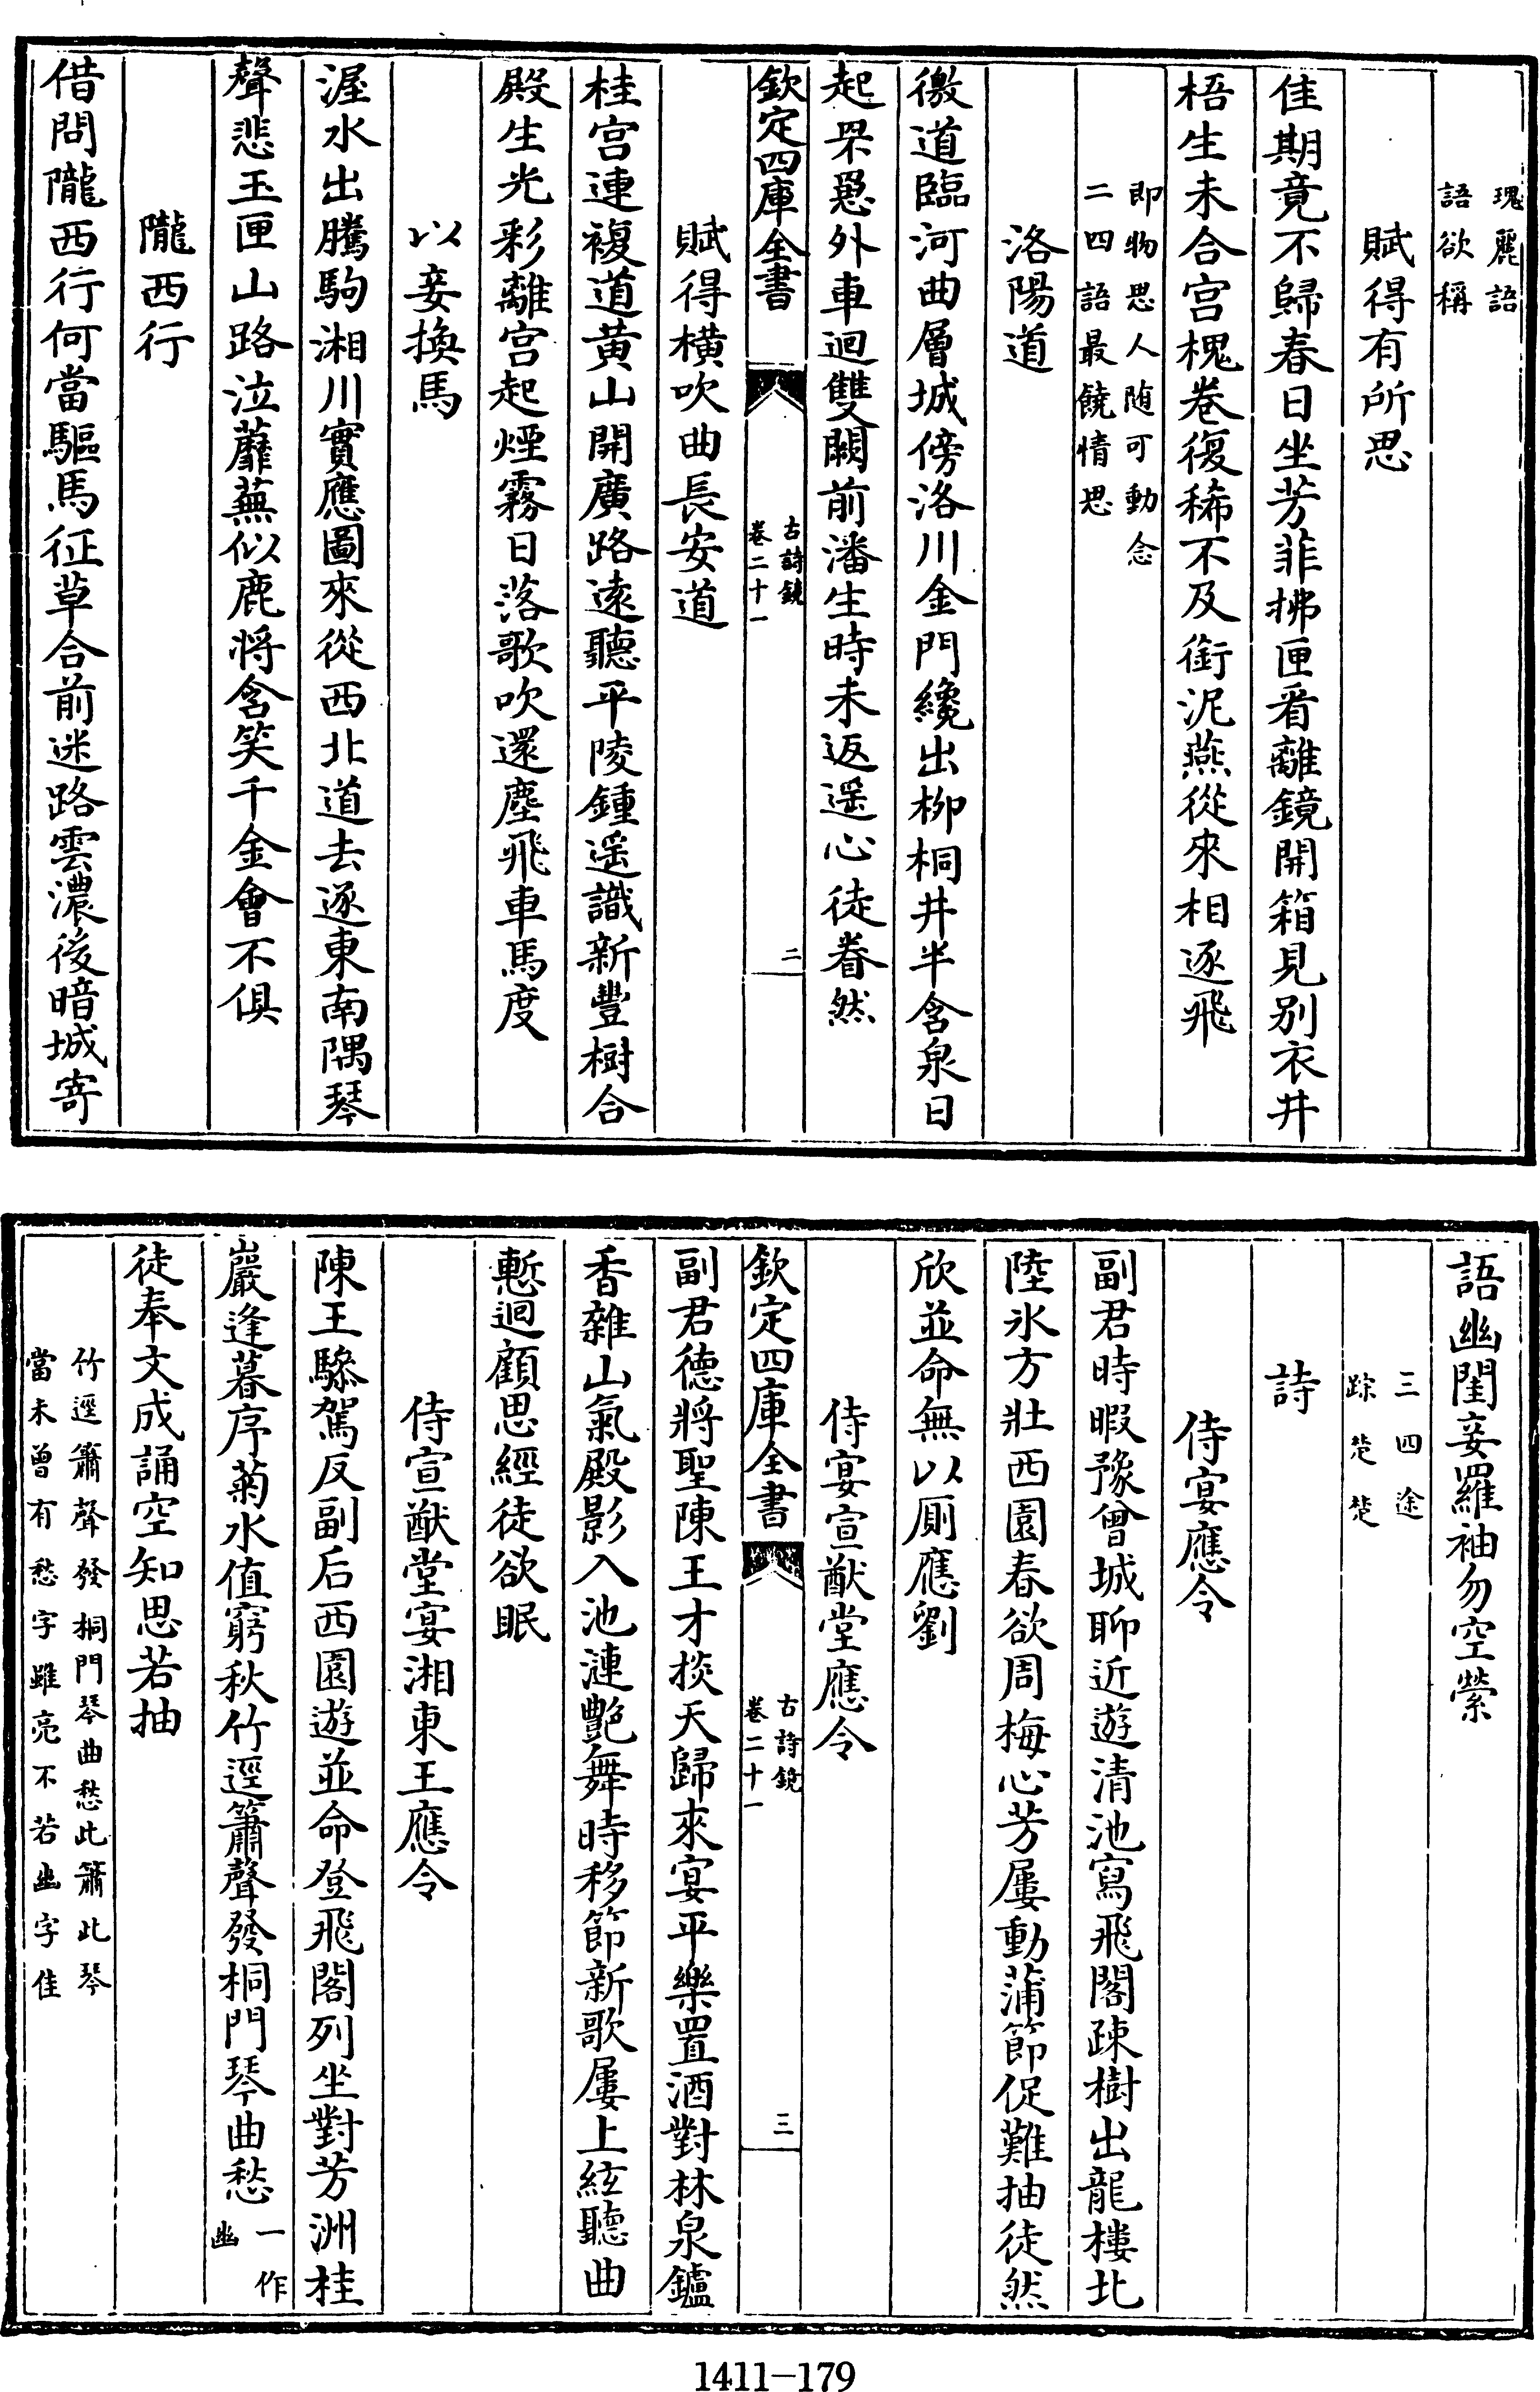 瑰麗語
語欲稱
賦得有所思
佳期竟不歸春日坐芳菲拂匣看離鏡開箱見別衣井
梧生未合宫槐卷復稀不及銜泥燕從來相逐飛
即物思人随可動念
二四語最饒情思
洛陽道
徼道臨河曲層城傍洛川金門纔出柳桐井半含泉日
起罘罳外車迴雙闕前潘生時未返遥心徒眷然
欽定四庫全書
古詩鏡
卷二十一
二
賦得横吹曲長安道
桂宫連複道黄山開廣路遠聽平陵鍾遥識新豐樹合
殿生光彩離宫起煙霧日落歌吹還塵飛車馬度
以妾換馬
渥水出騰駒湘川實應圖來從西北道去逐東南隅琴
聲悲玉匣山路泣蘼蕪似鹿將含笑千金會不俱
隴西行
借問隴西行何當驅馬征草合前迷路雲濃後暗城寄
語幽閨妾羅袖勿空縈
三四途
踪楚楚
詩
侍宴應令
副君時暇豫曾城聊近遊清池寫飛閣疎樹出龍樓北
陸氷方壯西園春欲周梅心芳屢動蒲節促難抽徒然
欣並命無以厠應劉
侍宴宣猷堂應令
欽定四庫全書
古詩鏡
卷二十一
三
副君德將聖陳王才掞天歸來宴平樂置酒對林泉鑪
香雜山氣殿影入池漣艶舞時移節新歌屢上絃聽曲
慙迴顧思經徒欲眠
侍宣猷堂宴湘東王應令
陳王驂駕反副后西園遊並命登飛閣列坐對芳洲桂
巖逢暮序菊水值窮秋竹逕簫聲發桐門琴曲愁一作幽
徒奉文成誦空知思若抽
竹逕簫聲發桐門琴曲愁此簫此琴
當未曾有愁字雖亮不若幽字佳
1411-179